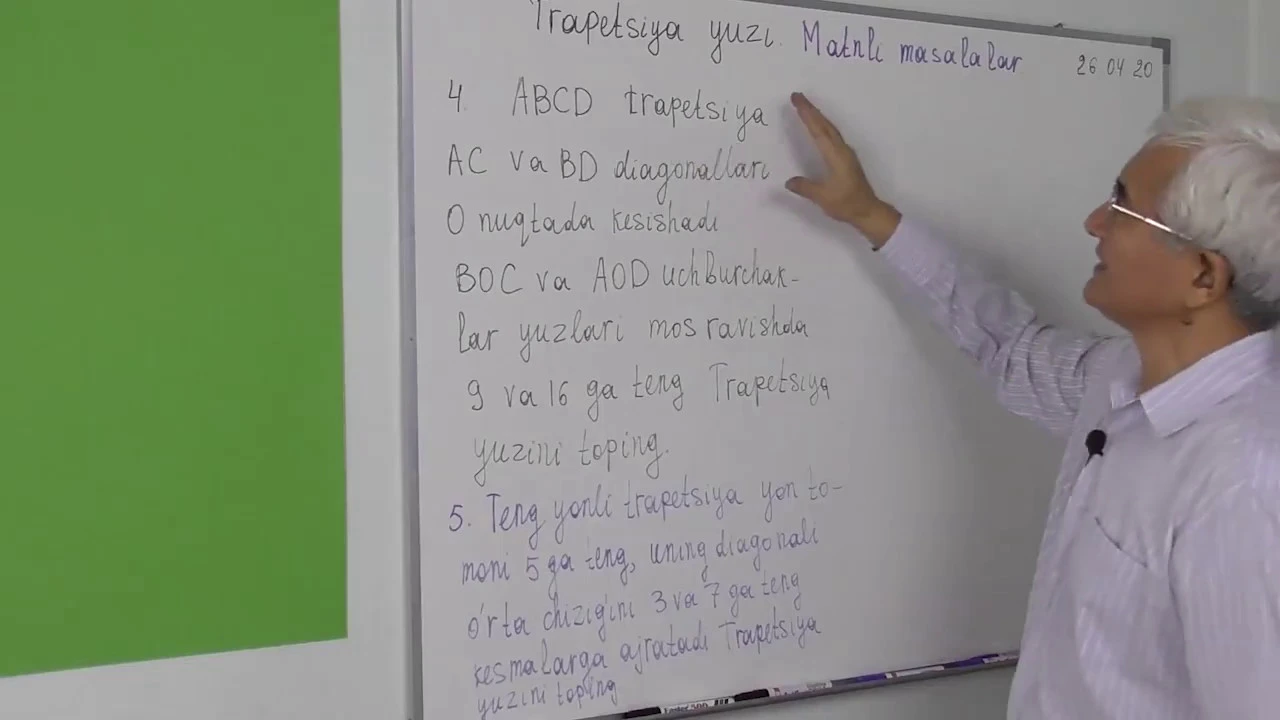 Trapetsiya yuzi. Matnli masalalar 26 04 20
4. ABCD trapetsiya
AC va BD diagonallari
O nuqtada kesishadi
BOC va AOD uchburchak-
lar yuzlari mos ravishda
9 va 16 ga teng Trapetsiya
yuzini toping.
5. Teng yonli trapetsiya yon to-
moni 5 ga teng, uning diagonali
o'rta chizig'ini 3 va 7 ga teng
kesmalarga ajratadi Trapetsiya
yuzini toping